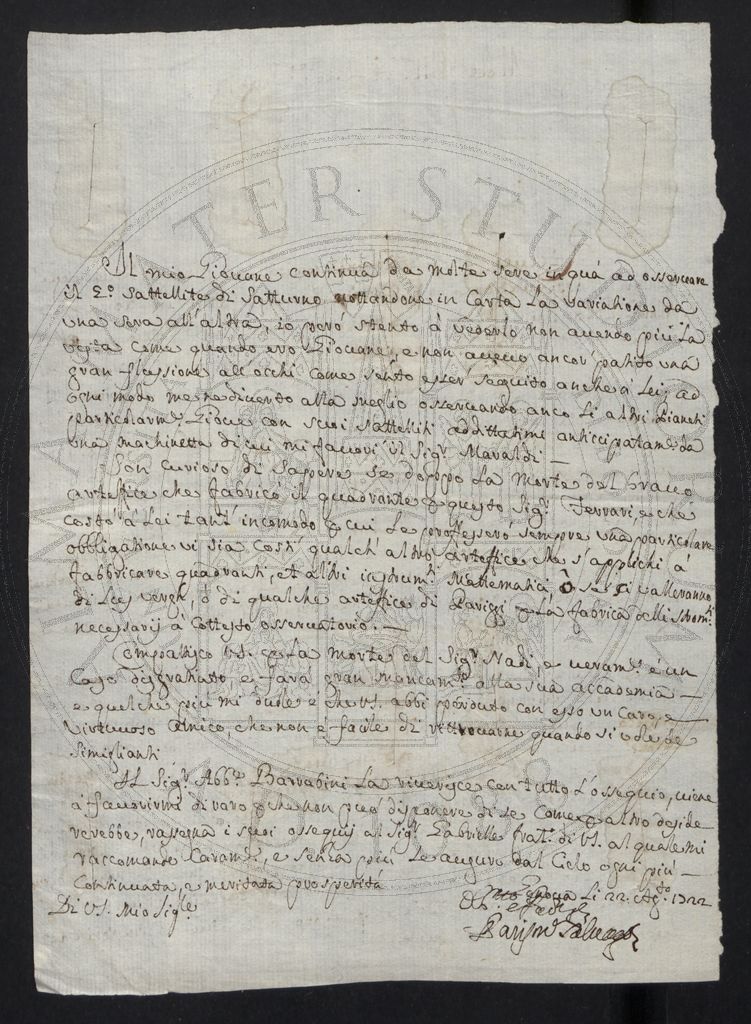 Il mio Giovane continua da molte sere in quà ad osservare
il 2.º Sattellite di Satturno nottandone in Carta la variatione da
una sera all'altra, io però stento à vederlo non avendo più la
vista come quando ero Giovane, e non avevo ancor patito una
gran flussione all'occhi come sento esser seguito anche à Lei, ad
ogni modo me ne diverto alla meglio osservando anco li altri Pianeti
particolarm.te Giove con suoi Sattelliti additatimi anticipatam.te da
una machinetta di cui mi favorì il Sig.r Maraldi —
Son curioso di sapere se doppo la morte del bravo
arteffice che fabricò il quadrante per questo Sig.r Ferrari, e che
costò à Lei tant'incomodo per cui le professerò sempre una particolare
obbligatione vi sia costì qualch'altro arteffice che s'applichi à
fabbricare quadranti, et altri instrum.ti Mathematici, ò se si valleranno
di ò di qualche arteffice di Parigi per la fabrica delli strom.ti
necessarij à Cottesto osservatorio. —
Compatisco V.S. per la morte del Sig.r Nadi, e veram.te é un
Caso disgratiato, e farà gran mancam.to alla sua accademia —
e quelche più mi duole é che V.S. abbi perduto con esso un Caro, e
virtuoso Amico, che non é facile di rittrovarne quando si vole de
simiglianti
Il Sig.r Abb.e Barrabini La riverisce con tutto l'ossequio, viene
à favorirmi di raro per che non puo disponere di se come per altro deside-
rerebbe, rassegna i suoi ossequij al Sig.r Gabrielle frat.o di V.S. al quale mi
raccomando Caram.te, e senza più le auguro dal Cielo ogni più —
Continuata, e meritata prosperità
Genova Li 22. Ag.to 1722
Di V.S. Mio Sig.re